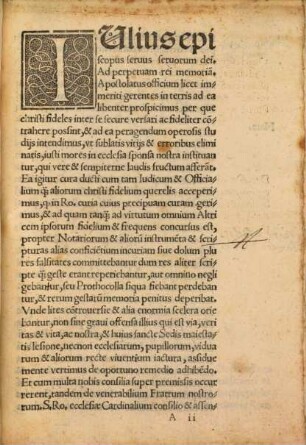 IVlius epi
scopus seruus seruorum dei.
Ad perpetuam rei memoriã.
Apostolatus officium licet im
meriti gerentes in terris ad ea
libenter prospicimus per que
christi fideles inter se secure versari ac fideliter cõ
trahere possint, & ad ea peragendum operosis stu
dijs intendimus, vt sublatis virijs & erroribus elimi
natis, iusti mores in ecclesia sponsa nostra instituan
tur, qui vere & sempiterne laudis fructum afferãt.
Ea igitur cura ducti cum tam Iudicum & Officia
lium q̃ aliorum christi fidelium querelis acceperi
mus, q in Ro. curia cuius precipuam curam geri
mus, & ad quam tanq̃ ad virtutum omnium Altri
cem ipsorum fidelium & frequens concursus est,
propter Notariorum & aliorũ instrumẽta & scri
pturas alias conficientium incuriam siue dolum plu
res falsitates committebantur dum res aliter scri
pte q̃ geste erant reperiebantur, aut omnino negli
gebantur, seu Prothocolla siqua fiebant perdeban
tur, & rerum gestarũ memoria penitus deperibat.
Vnde lites cõtrouersie & alia enormia scelera orie
bantur, non sine graui offensa illius qui est via, veri
tas & vita, ac nostra, & huius sancte Sedis maiesta
tis lesione, necnon ecclesiarum, pupillorum, vidua
rum & aliorum recte viuentium iactura, assidue
mente vertimus de oportuno remedio adhibẽdo.
Et cum multa nobis consilia super premissis occur
rerent, tandem de venerabilium Fratrum nostro
rum, S. Ro, ecclesiæ Cardinalium consilio & assen
A ii